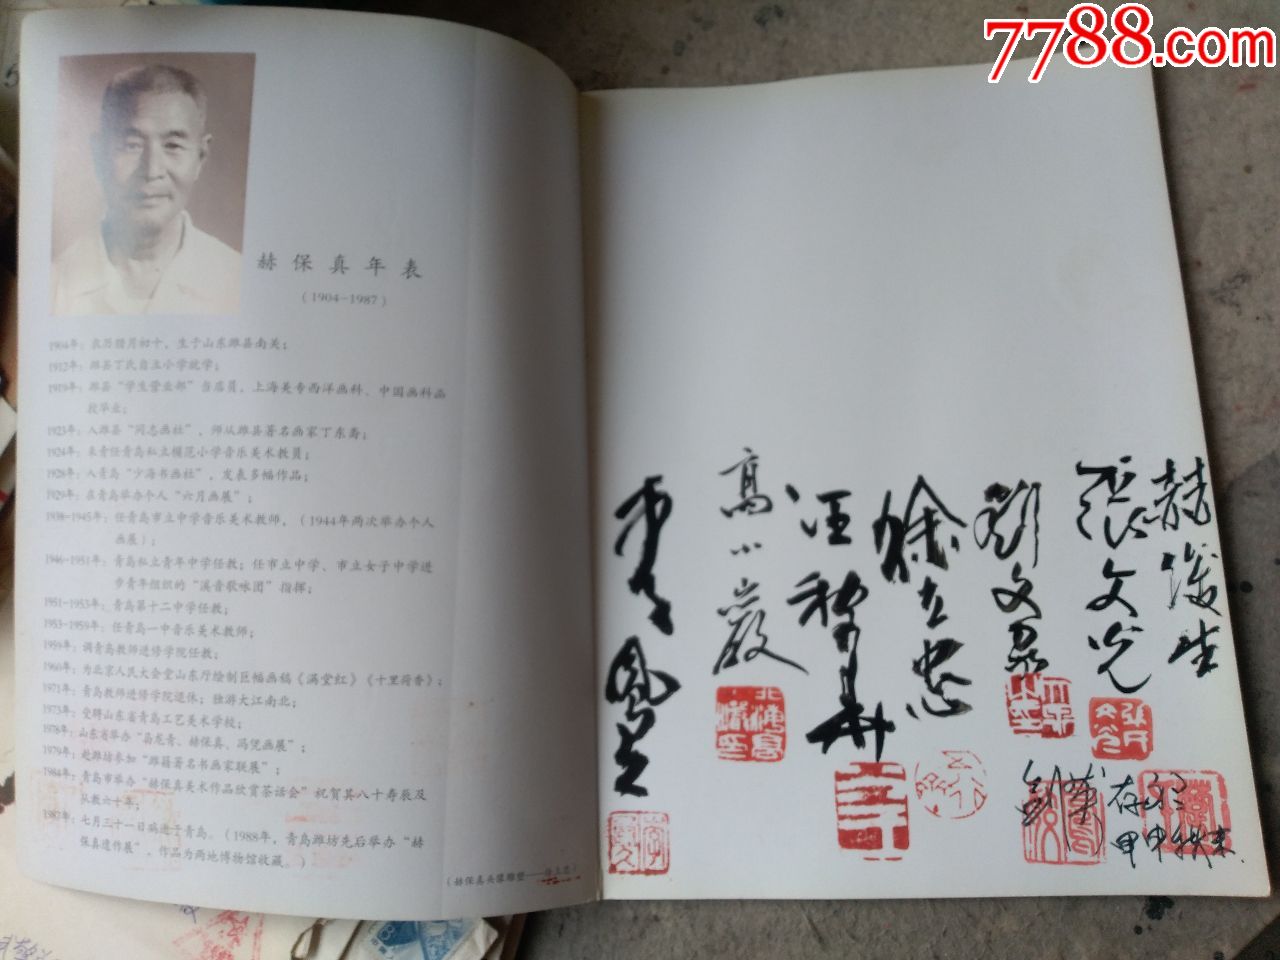 7788.com
赫保真年表
(1904-1987)
1904年：农历腊月初十，生于山东潍县南关；
1912年：潍县丁氏自立小学就学；
1919年：潍县“学生营业部”当店员，上海美专西洋画科、中国画科函
授毕业；
1923年：入潍县“同志画社”，师从潍县著名画家丁东斋；
1924年：来青任青岛私立模范小学音乐美术教员；
1928年：入青岛“少海书画社”，发表多幅作品；
1929年：在青岛举办个人“六月画展”；
1938-1945年：任青岛市立中学音乐美术教师，（1944年两次举办个人
画展）；
1946-1951年：青岛私立青年中学任教；任市立中学、市立女子中学进
步青年组织的“溪音歌咏团”指挥；
1951-1953年：青岛第十二中学任教；
1953-1959年：任青岛一中音乐美术教师；
1959年：调青岛教师进修学院任教；
1960年：为北京人民大会堂山东厅绘制巨幅画稿《满堂红》《十里荷香》；
1971年：青岛教师进修学院退休；独游大江南北；
1973年：受聘山东省青岛工艺美术学校；
1978年：山东省举办“吕龙青、赫保真、冯凭画展”；
1979年：赴潍坊参加“潍籍著名书画家联展”；
1984年：青岛市举办“赫保真美术作品欣赏茶话会”祝贺其八十寿辰及
从教六十年；
1987年：七月三十一日病逝于青岛。（1988年，青岛潍坊先后举办“赫
保真遗作展”，作品为两地博物馆收藏。）
（赫保真头像雕塑——徐立忠）
赫俊生
张文光
刘文泉
徐立忠
高小岩
存念
甲申秋末